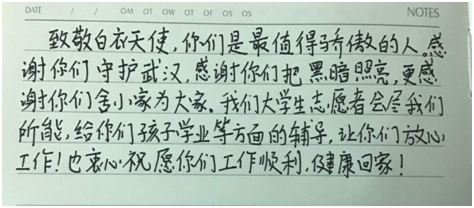 DATE / / OM OT OW OT OF OS OS NOTES
致敬白衣天使,你们是最值得骄傲的人。感
谢你们守护武汉,感谢你们把黑暗照亮,更感
谢你们舍小家为大家。我们大学生志愿者会尽我们
所能,给你们孩子学业等方面的辅导,让你们放心
工作!也衷心祝愿你们工作顺利,健康回家!